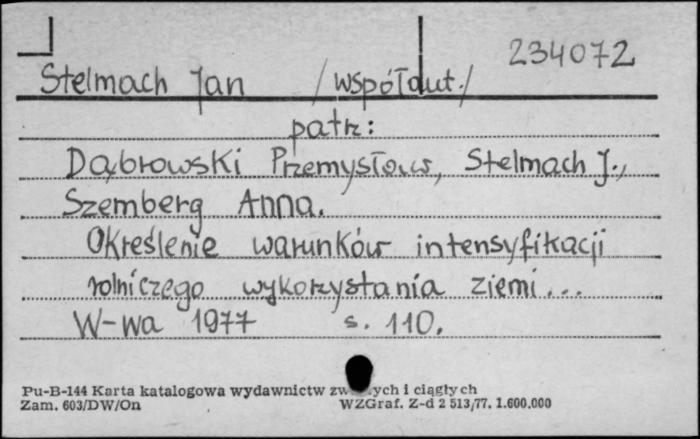 234072
Stelmach Jan /współaut./
patrz:
Dąbrowski Przemysław, Stelmach J.,
Szemberg Anna.
Określenie warunków intensyfikacji
rolniczego wykorzystania ziemi...
W-wa 1977 s. 110.
Pu-B-144 Karta katalogowa wydawnictw i ciągłych
Zam. 603/DW/On WZGraf. Z-d 2 513/77. 1.600.000